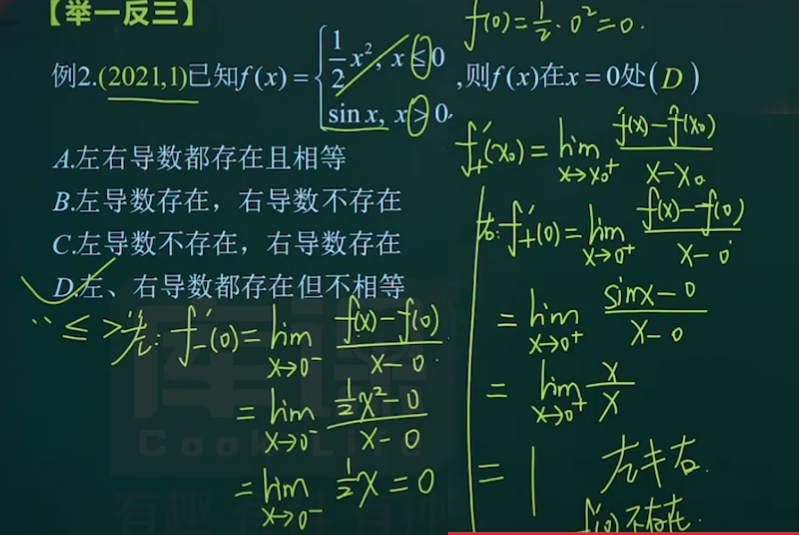 【举一反三】
f(0)=1/2·0²=0.
例2.(2021,1)已知f(x)={1/2x², x≤0
sin x, x>0. ,则f(x)在x=0处( D )
A.左右导数都存在且相等
B.左导数存在，右导数不存在
C.左导数不存在，右导数存在
D.左、右导数都存在但不相等
∵ ≤ >
左: f'₋(0)=lim x→0⁻ (f(x)-f(0))/(x-0)
=lim x→0⁻ (1/2x²-0)/(x-0)
=lim x→0⁻ 1/2x=0
f'₊(x₀)=lim x→x₀⁺ (f(x)-f(x₀))/(x-x₀)
右: f'₊(0)=lim x→0⁺ (f(x)-f(0))/(x-0)
=lim x→0⁺ (sinx-0)/(x-0)
=lim x→0⁺ x/x
=1 左≠右.
f'(0)不存在.
Cook Life